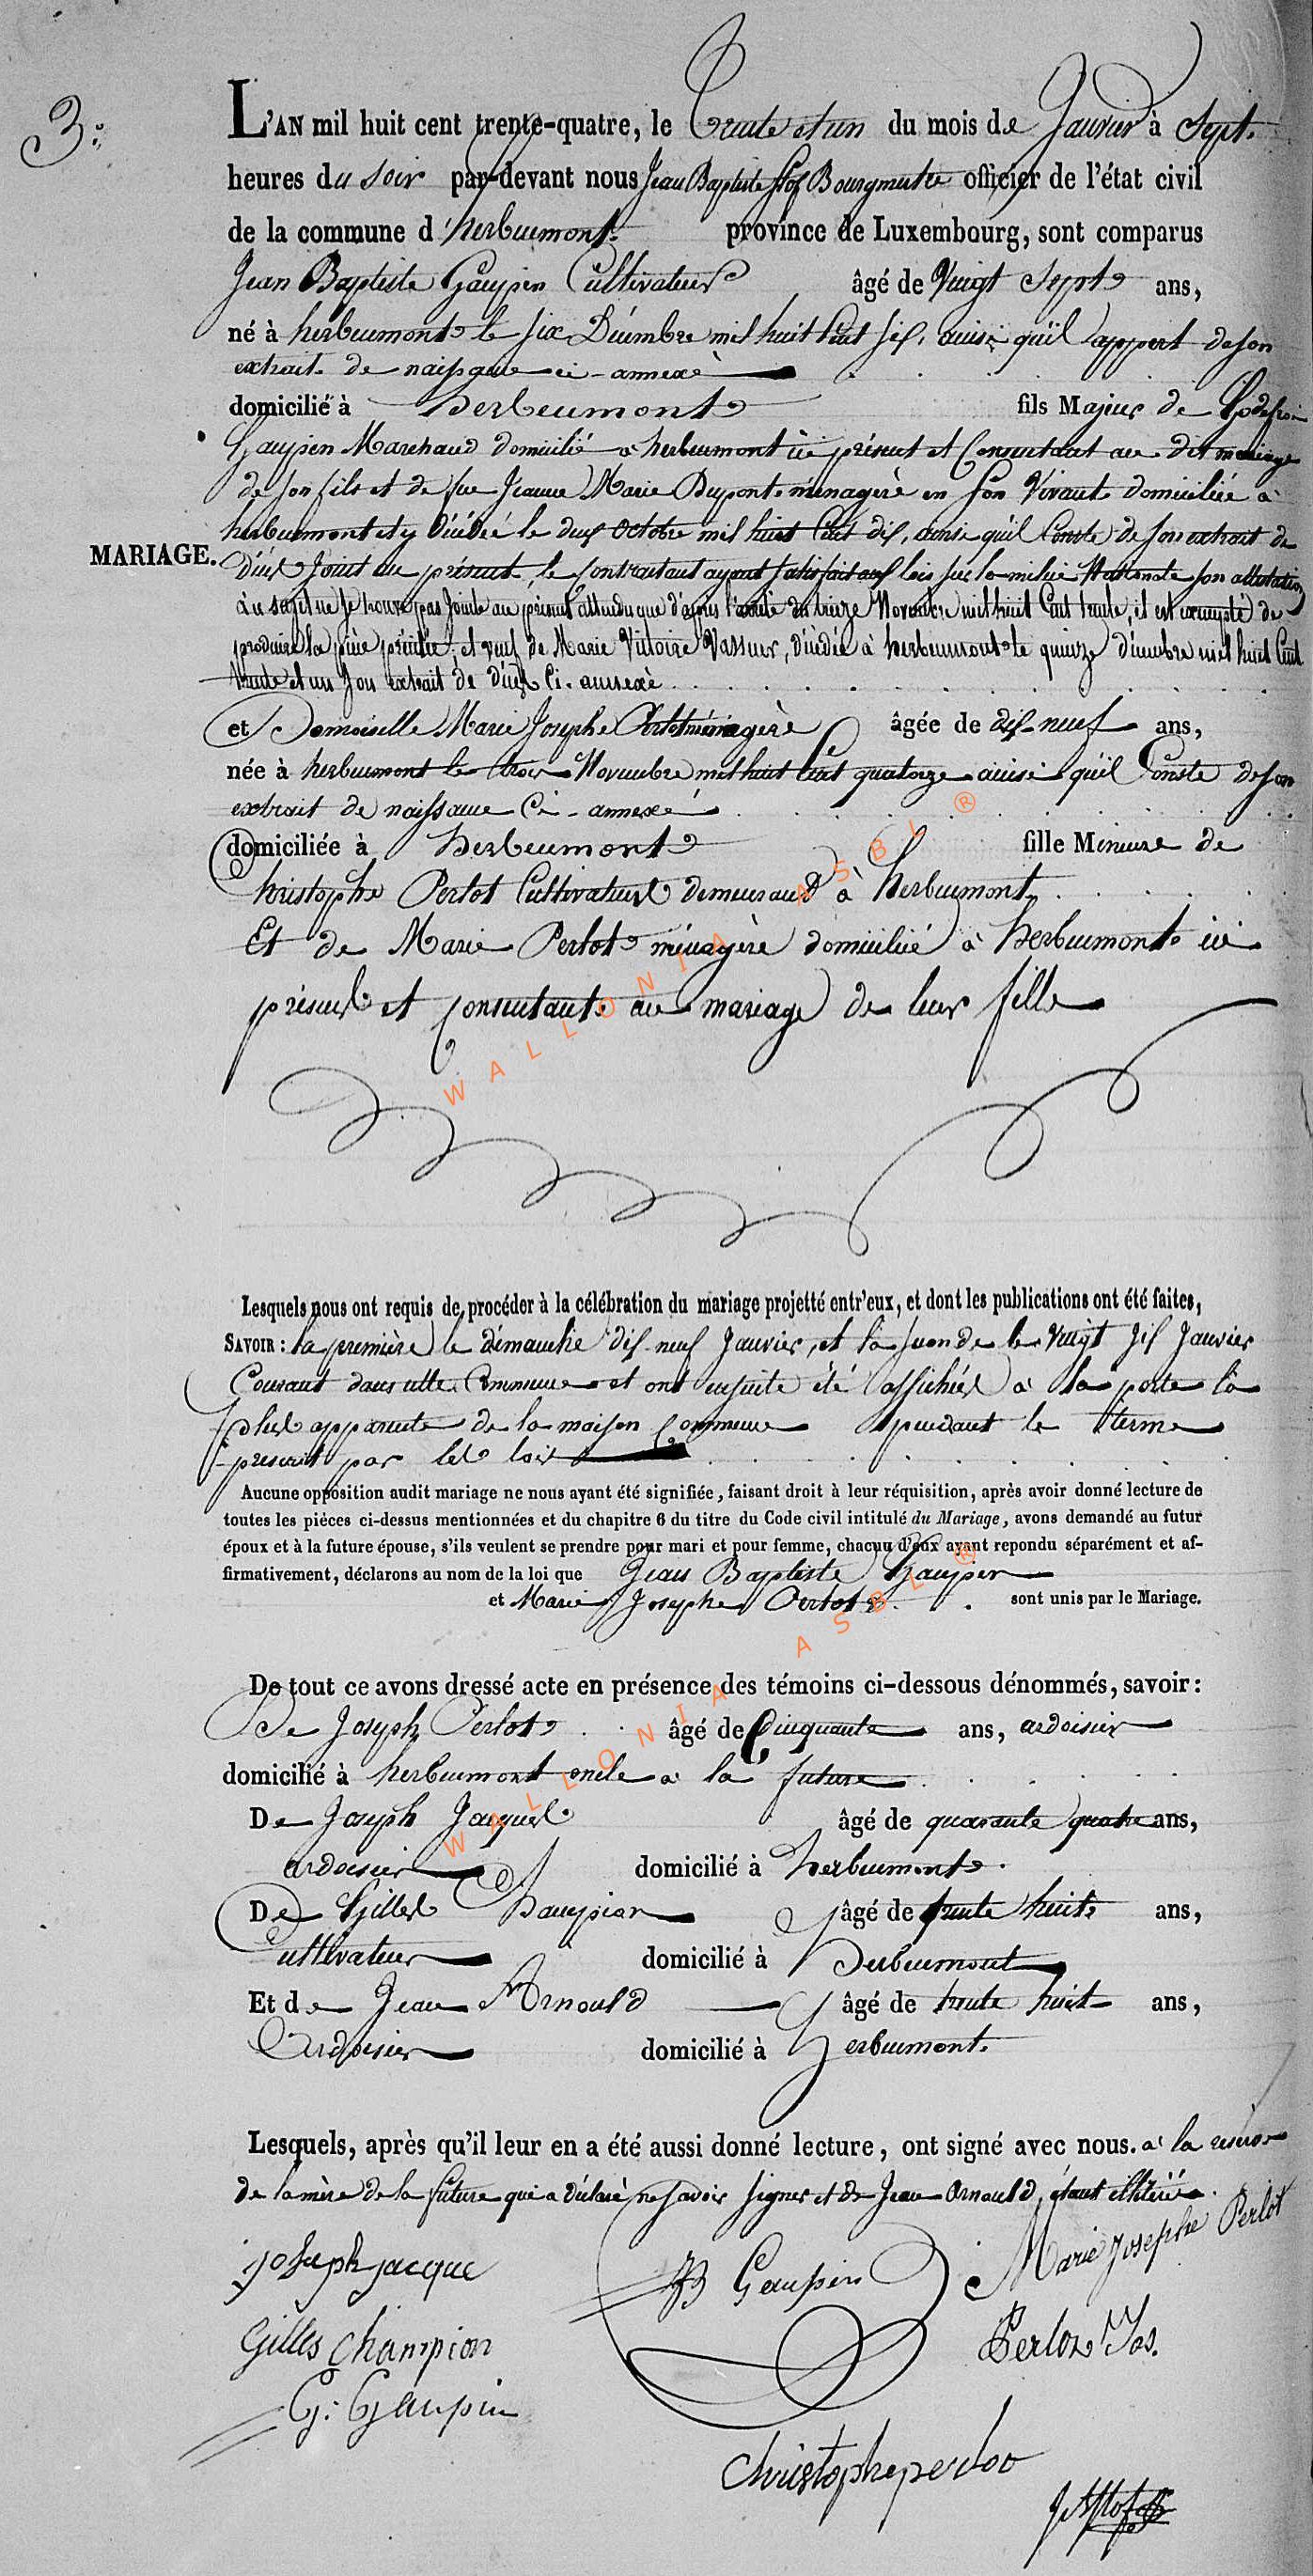 3.°
L'AN mil huit cent trente-quatre, le Trente et un du mois de Janvier à Sept
heures du soir par-devant nous Jean Baptiste Stof Bourgmestre officier de l'état civil
de la commune d'herbeumont province de Luxembourg, sont comparus
Jean Baptiste Gaupin Cultivateur âgé de Vingt Sept ans,
né à herbeumont le six Décembre mil huit Cent six, ainsi qu'il appert de son
extrait de naissance ci-annexé
domicilié à Herbeumont fils Majeur de Godefroi
Gaupin Marchand domicilié à herbeumont ici présent et Consentant au dit mariage
de son fils et de feue Jeanne Marie Dupont ménagère en son Vivant domiciliée à
herbeumont et y décédée le deux octobre mil huit Cent dix, ainsi qu'il Conste de son extrait de
MARIAGE.
décès Joint au présent, le Contractant ayant satisfait aux lois sur la milice Nationale son attestation
à ce sujet ne se trouve pas Jointe au présent attendu que d'après l'arrêté du treize Novembre mil huit Cent trente, il est exempté de
produire la pièce précitée, et veuf de Marie Victoire Vasseur, décédée à herbeumont le quinze décembre mil huit Cent
trente et un son extrait de décès Ci-annexé
et Demoiselle Marie Josephe Perlot ménagère âgée de dix-neuf ans,
née à herbeumont le trois Novembre mil huit Cent quatorze ainsi qu'il Conste de son
extrait de naissance Ci-annexé
domiciliée à Herbeumont fille Mineure de
Christophe Perlot Cultivateur demeurant à herbeumont
Et de Marie Perlot ménagère domiciliée à herbeumont ici
présents et Consentants au mariage de leur fille
Lesquels nous ont requis de procéder à la célébration du mariage projetté entr'eux, et dont les publications ont été faites,
SAVOIR : la première le dimanche dix-neuf Janvier, et la seconde le Vingt six Janvier
Courant dans cette Commune et ont ensuite été affichées à la porte la
plus apparente de la maison Commune pendant le terme
prescrit par les lois
Aucune opposition audit mariage ne nous ayant été signifiée, faisant droit à leur réquisition, après avoir donné lecture de
toutes les pièces ci-dessus mentionnées et du chapitre 6 du titre du Code civil intitulé du Mariage, avons demandé au futur
époux et à la future épouse, s'ils veulent se prendre pour mari et pour femme, chacun d'eux ayant repondu séparément et af-
firmativement, déclarons au nom de la loi que Jean Baptiste Gaupin
et Marie Josephe Perlot sont unis par le Mariage.
De tout ce avons dressé acte en présence des témoins ci-dessous dénommés, savoir :
De Joseph Perlot âgé de Cinquante ans, ardoisier
domicilié à herbeumont oncle à la future
De Joseph Jacques âgé de quarante quatre ans,
ardoisier domicilié à herbeumont
De Gilles Champion âgé de trente huit ans,
Cultivateur domicilié à Herbeumont
Et de Jean Arnould âgé de trente huit ans,
Ardoisier domicilié à herbeumont
Lesquels, après qu'il leur en a été aussi donné lecture, ont signé avec nous. à la réserve
de la mère de la future qui a déclaré ne savoir signer et de Jean Arnould étant illitéré
joseph jacque
JB Gaupin
Marie Josephe Perlot
Gilles Champion
Perlot Jos.
G: Gaupin
Christophe perloo
WALLONIA ASBL ®
WALLONIA ASBL ®